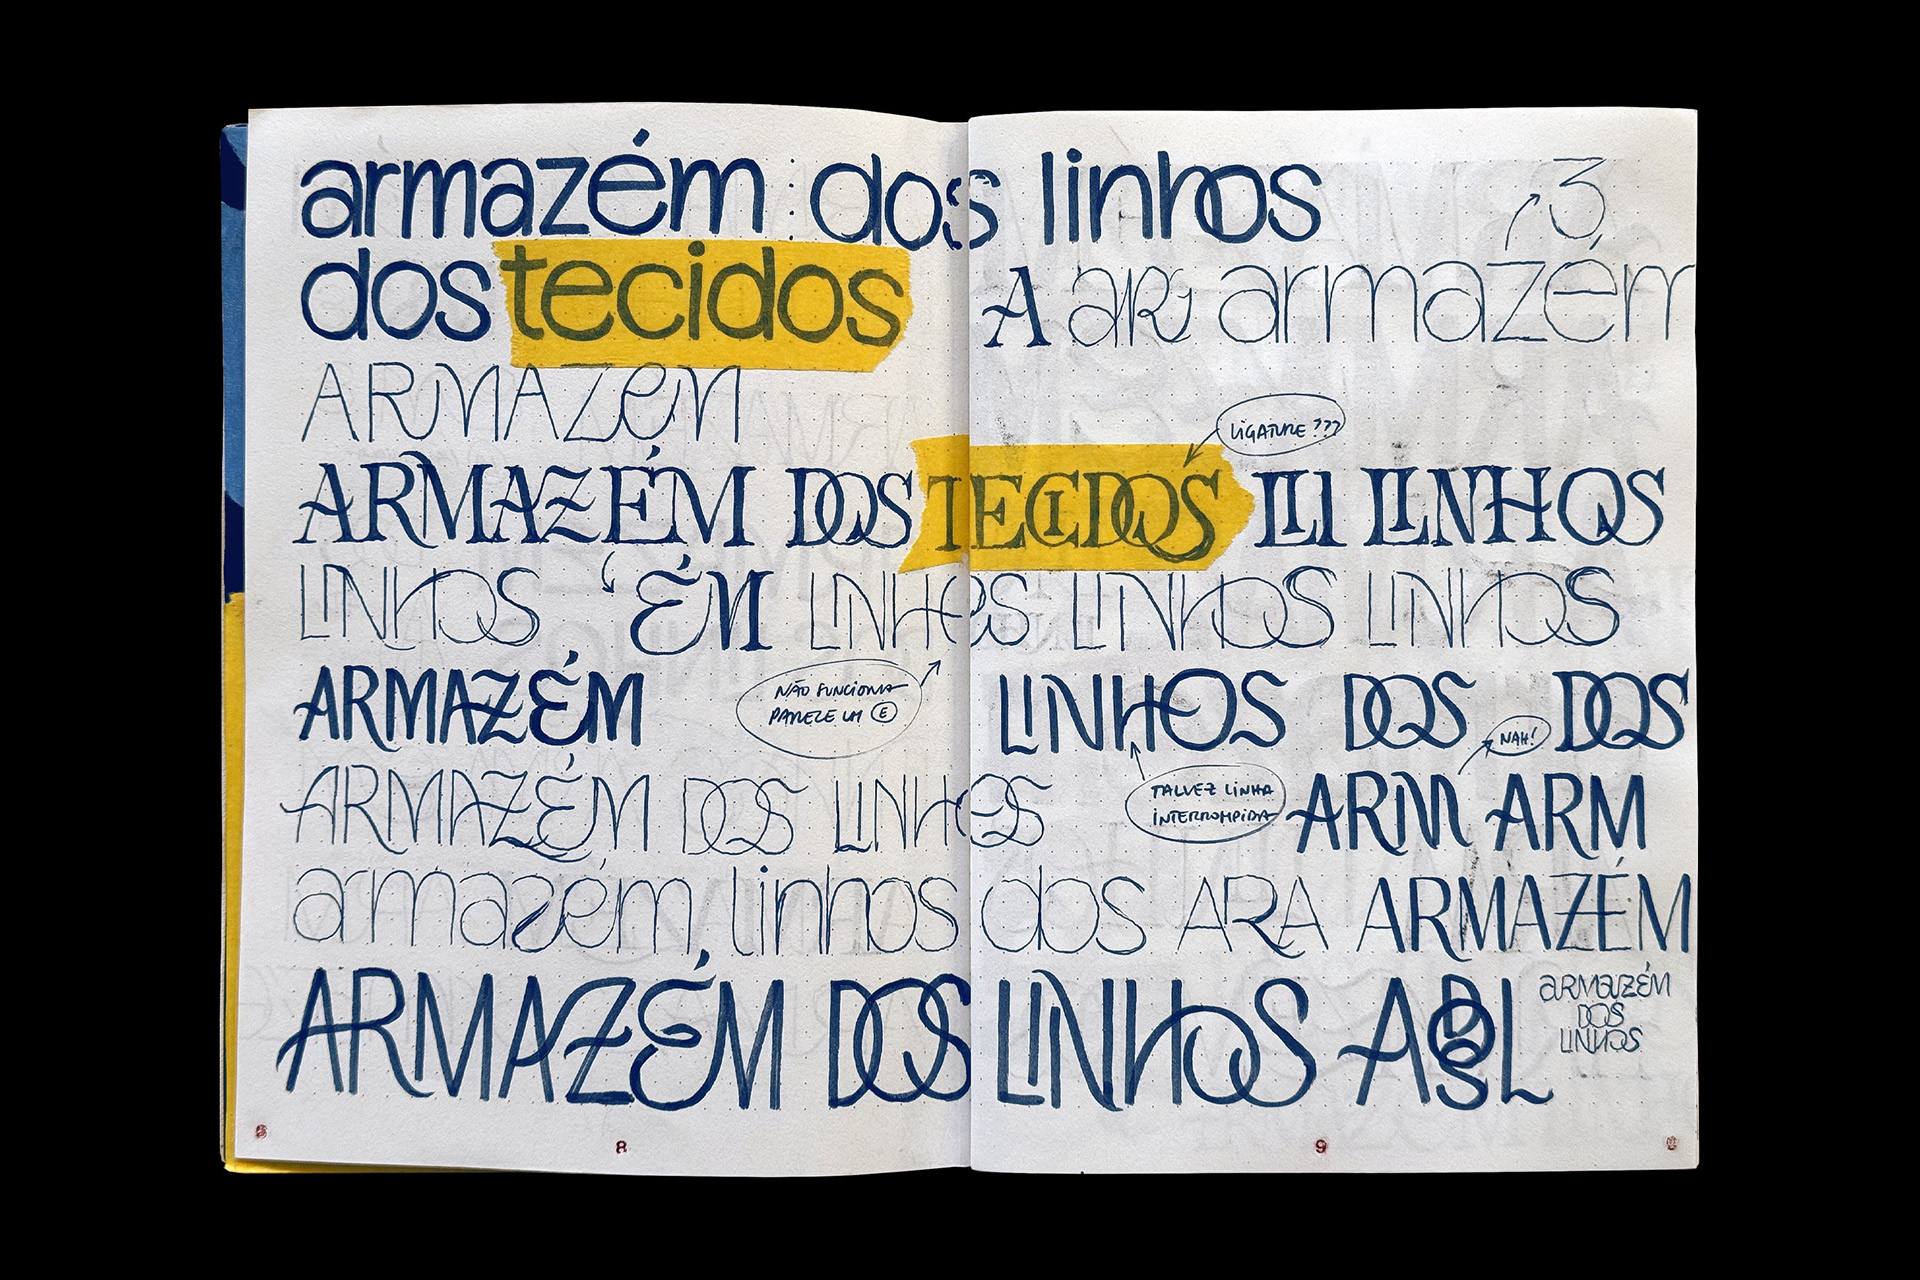 armazém : dos linhos
3
dos tecidos
A aR armazém
ARMAZEM
LIGATURE ???
ARMAZÉM DOS TECIDOS LI LINHOS
LINHOS ÉM LINHOS LINHOS LINHOS
ARMAZÉM
NÃO FUNCIONA
PARECE UM E
LINHOS DOS DOS
NAH!
ARMAZÉM DOS LINHOS
TALVEZ LINHA
INTERROMPIDA
ARM ARM
armazém linhos dos ARA ARMAZÉM
ARMAZÉM DOS LINHOS ADOSL
ARMAZÉM
DOS
LINHOS
8
9